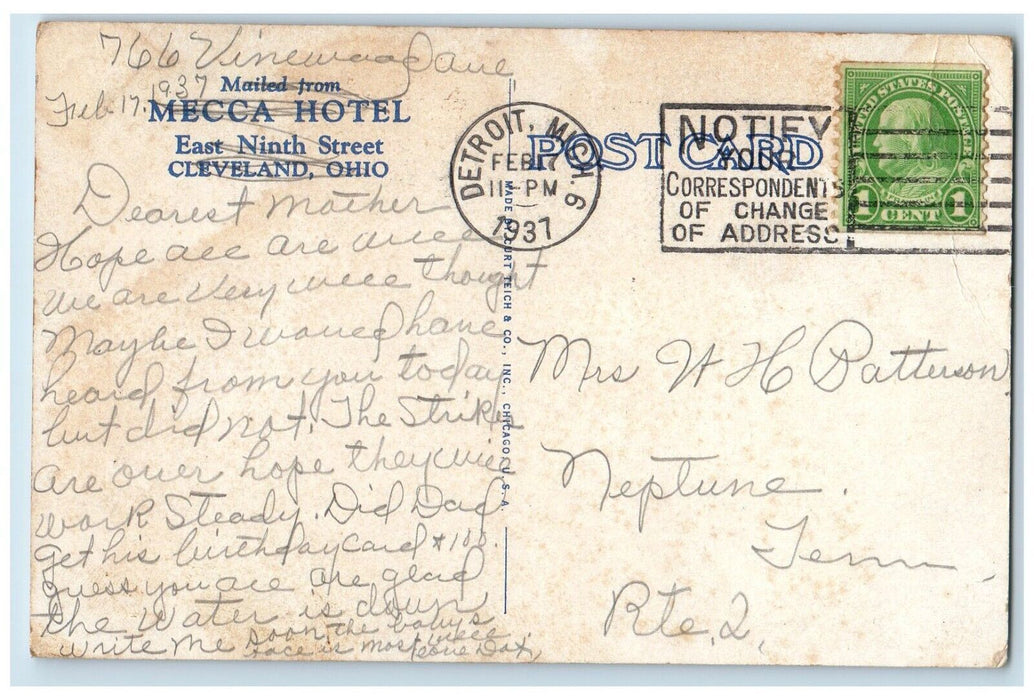 766 Vinewood Ave
Feb. 17. 1937
Mailed from
MECCA HOTEL
East Ninth Street
CLEVELAND, OHIO
Dearest Mother
Hope all are well
We are very well thought
Maybe I would have
heard from you today
but did not. The Strikes
are over hope they will
work Steady. Did Dad
get his birthday card &
guess you all are glad
the water is down
write me soon the baby's
face is most well
MADE BY CURT TEICH & CO., INC., CHICAGO, U.S.A.
POST CARD
DETROIT, MICH. 6
FEB 17
11 - PM
1937
NOTIFY
YOUR
CORRESPONDENTS
OF CHANGE
OF ADDRESS
UNITED STATES POSTAGE
1 CENT 1
Mrs W H Patterson
Neptune.
Tenn.
Rte. 2.